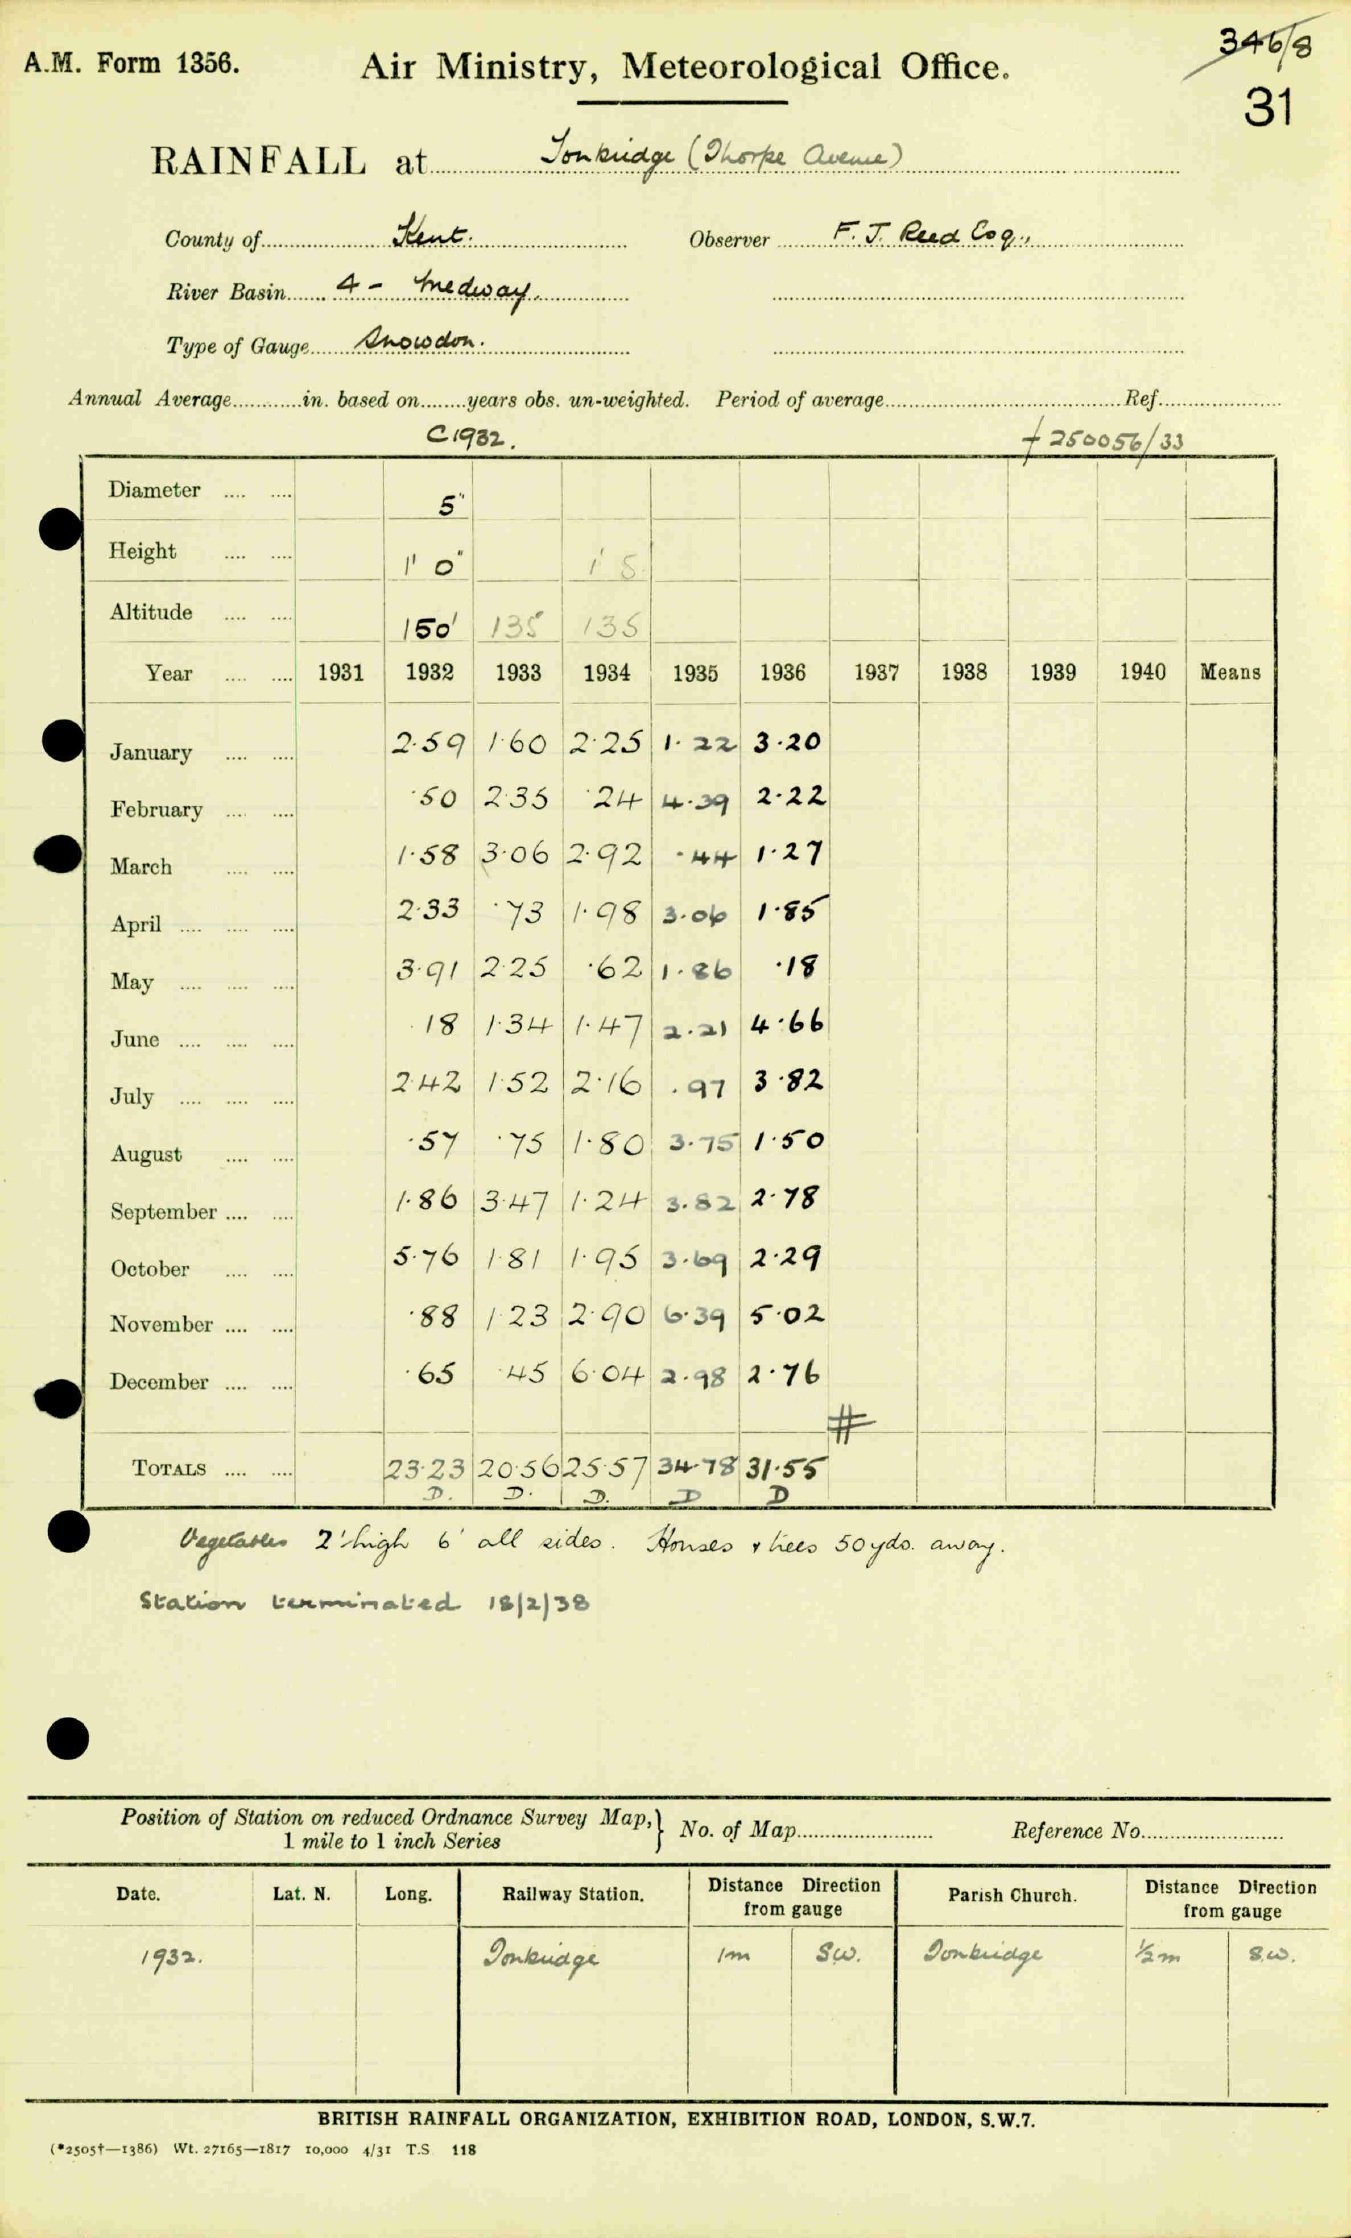 A.M. Form 1356.
Air Ministry, Meteorological Office.
346/8
31
RAINFALL at Tonbridge (Thorpe Avenue)
County of Kent. Observer F. J. Reed Esq.,
River Basin 4 - Medway.
Type of Gauge Snowdon.
Annual Average in. based on years obs. un-weighted. Period of average Ref.
C1932. † 250056/33
Diameter 5"
Height 1' 0" 1' 5
Altitude 150' 135 135
Year 1931 1932 1933 1934 1935 1936 1937 1938 1939 1940 Means
January 2·59 1·60 2·25 1·22 3·20
February ·50 2·35 ·24 4·39 2·22
March 1·58 3·06 2·92 ·44 1·27
April 2·33 ·73 1·98 3·06 1·85
May 3·91 2·25 ·62 1·86 ·18
June ·18 1·34 1·47 2·21 4·66
July 2·42 1·52 2·16 ·97 3·82
August ·57 ·75 1·80 3·75 1·50
September 1·86 3·47 1·24 3·82 2·78
October 5·76 1·81 1·95 3·69 2·29
November ·88 1·23 2·90 6·39 5·02
December ·65 ·45 6·04 2·98 2·76
#
TOTALS 23·23 20·56 25·57 34·78 31·55
D. D. D. D D
Vegetables 2' high 6' all sides. Houses & trees 50 yds. away.
Station terminated 18/2/38
Position of Station on reduced Ordnance Survey Map, 1 mile to 1 inch Series } No. of Map Reference No.
Date. Lat. N. Long. Railway Station. Distance Direction from gauge Parish Church. Distance Direction from gauge
1932. Tonbridge 1m SW. Tonbridge ½m S.W.
BRITISH RAINFALL ORGANIZATION, EXHIBITION ROAD, LONDON, S.W.7.
(*2505†—1386) Wt. 27165—1817 10,000 4/31 T.S 118